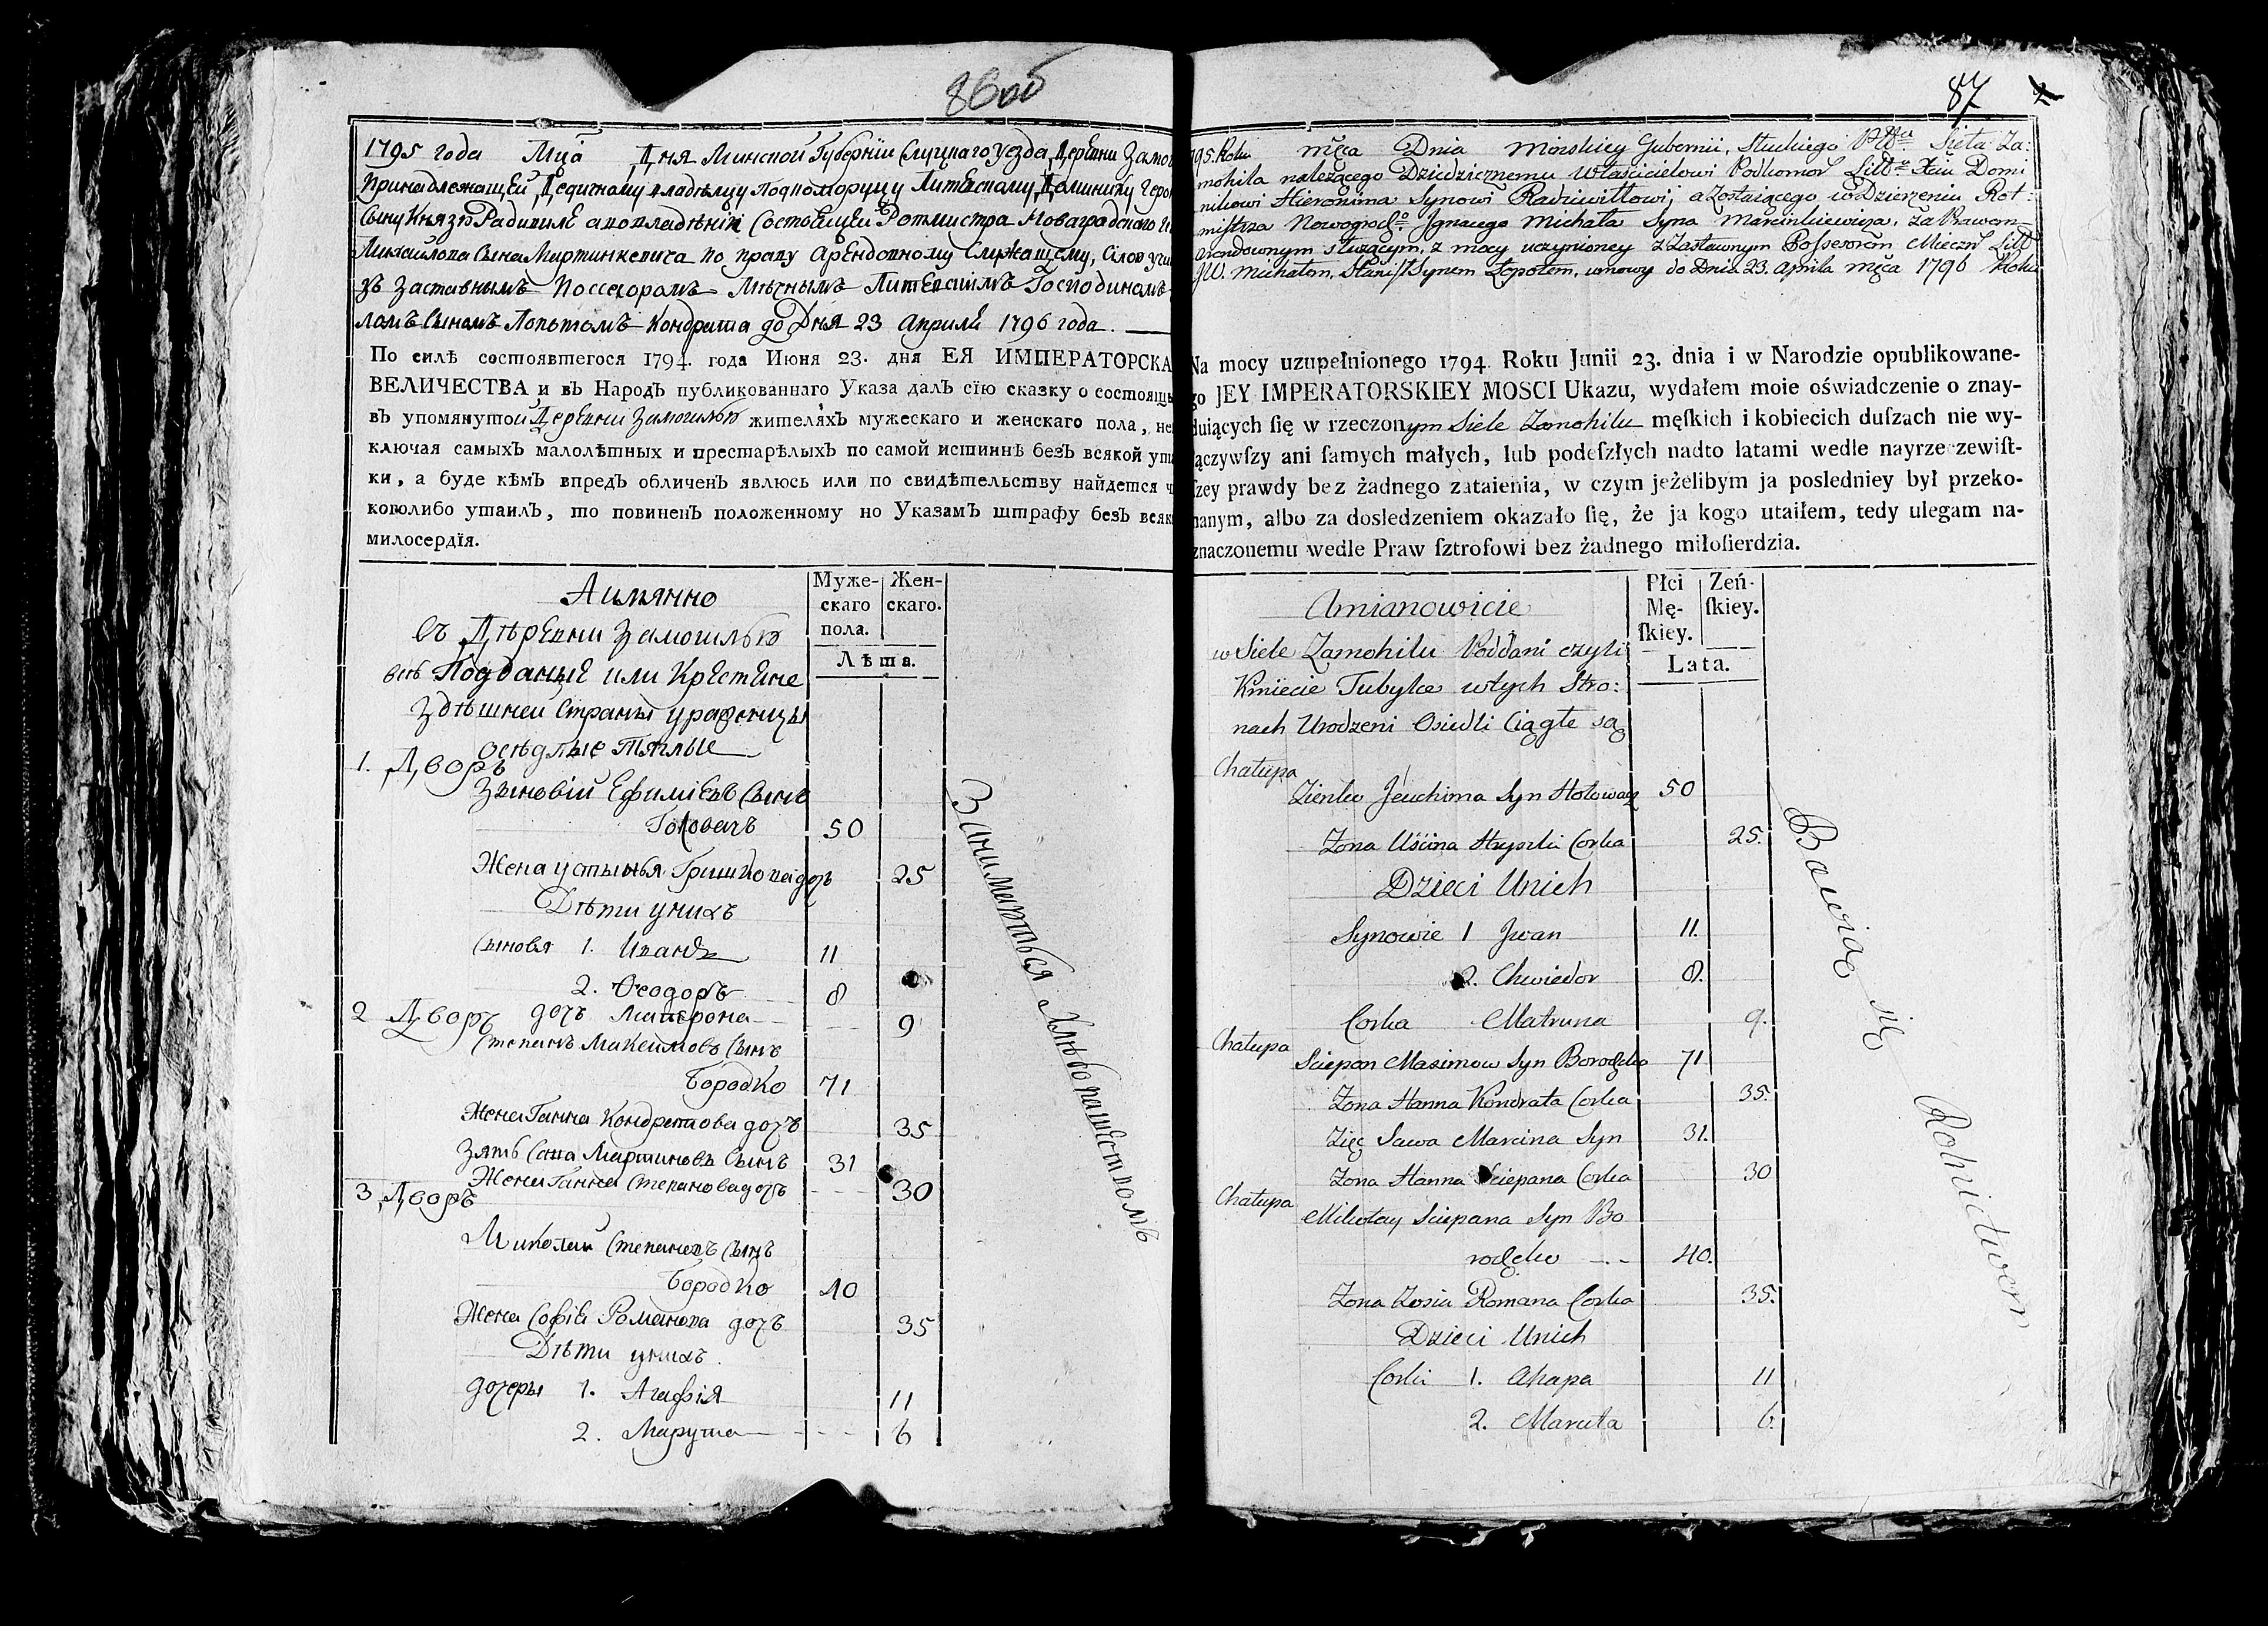 86 об
1795 года Мца Дня Минской Губернїи Слуцкаго уезда Деревни Замог
принадлежащей Дедичному владелцу Подкоморому Литевскому Доминику Геро
сыну Князю Радивиле а во владѣнїи состоящей Ротмистра Новаградскаго
Михайлова сына Мартинкевича по праву Арендовному служащему,
зъ заставнымъ поссесоромъ Мѣчнымъ Литевскимъ Господиномъ
ломъ сыномъ Лопотомъ до Дня 23 Априля 1796 года.
По силѣ состоявшегося 1794. года Июня 23. дня ЕЯ ИМПЕРАТОРСКА
ВЕЛИЧЕСТВА и въ Народъ публикованнаго Указа далъ сїю сказку о состоящи
въ упомянутой Деревни Замогилью жителяхъ мужескаго и женскаго пола, не
ключая самыхъ малолѣтныхъ и престарѣлыхъ по самой истиннѣ безъ всякой ута
ки, а буде кѣмъ впредъ обличенъ явлюсь или по свидѣтельству найдется ч
коголибо утаилъ, то повиненъ положенному по Указамъ штрафу безъ всяк
милосердїя.
Муже-скаго пола. Жен-скаго.
Лѣта.
Аимянно
въ Дѣревни Замогилью
Подданые или Крестяне
Здѣшней страны уроженцы
оседлые тяглые
1. Дворъ
Зѣновїй Ефимїевъ сынъ
Головачъ 50
Жена устинья Гришкова дочь 25
Дѣти унихъ
Сыновя 1. Иванъ 11
2. Ѳеодоръ 8
дочь Матрона 9
2 Дворъ
Степанъ Максимовъ сынъ
Бородко 71
Жена Ганна Кондратова дочъ 35
Зять Сава Мартиновъ сынъ 31
Жена Ганна Степанова дочъ 30
3 Дворъ
Миколай Степановъ сынъ
Бородко 40
Жена Софїя Романова дочъ 35
Дѣти унихъ
дочеры 1. Агафїя 11
2. Марута 6
Заниматься хлѣбопашествомъ
87
795. Roku męca Dnia Minskiey Gubernii, Słuckiego Pttu Sieła Za:
mohila należącego Dziedzicznemu Właścicielowi Podkomor Litt Xciu Domi
nikowi Hieronima Synowi Radziwiłłowi, a Zostaiącego w Dzierżeniu Rot:
mistrza Nowogrodo Jgnacego Michała Syna Marcinkiewicza, za Prawem
Arendownym służącym, z mocy uczynioney z Zastawnym Possesorem Mieczn Litt
JW. Michałem, Stanisł Synem Łopotem, umowy do Dnia 23. Aprila męca 1796 Roku
Na mocy uzupełnionego 1794. Roku Junii 23. dnia i w Narodzie opublikowane-
go JEY IMPERATORSKIEY MOSCI Ukazu, wydałem moie oświadczenie o znay-
duiących ſię w rzeczonym Siele Zamohilu męſkich i kobiecich duſzach nie wy-
łączywſzy ani ſamych małych, lub podeſzłych nadto latami wedle nayrzeczewiſt-
ſzey prawdy bez żadnego zataienia, w czym jeżelibym ja posledniey był przeko-
nanym, albo za dosledzeniem okazało ſię, że ja kogo utaiłem, tedy ulegam na-
znaczonemu wedle Praw ſztrofowi bez żadnego miłoſierdzia.
Płci Mę-ſkiey. Zeń-ſkiey.
Lata.
Amianowicie
w Siele Zamohilu Poddani czyli
Kmiecie Tubylce w tych Stro:
nach Urodzeni Osiedli Ciągłe są
Chałupa
Zienko Jeuchima Syn Hołowacz 50
Zona Uścina Hryszki Corka 25.
Dzieci Unich
Synowie 1 Jwan 11.
2. Chwiedor 8.
Corka Matruna 9.
Chałupa
Sciepan Maximow Syn Borodzko 71
Zona Hanna Kondrata Corka 35.
Zięć Sawa Marcina Syn 31.
Zona Hanna Sciepana Corka 30
Chałupa
Mikołay Sciepana Syn Bo
rodzko 40.
Zona Zosia Romana Corka 35.
Dzieci Unich
Corki 1. Ahapa 11
2. Maruta 6.
Bawią się Rolnictwem